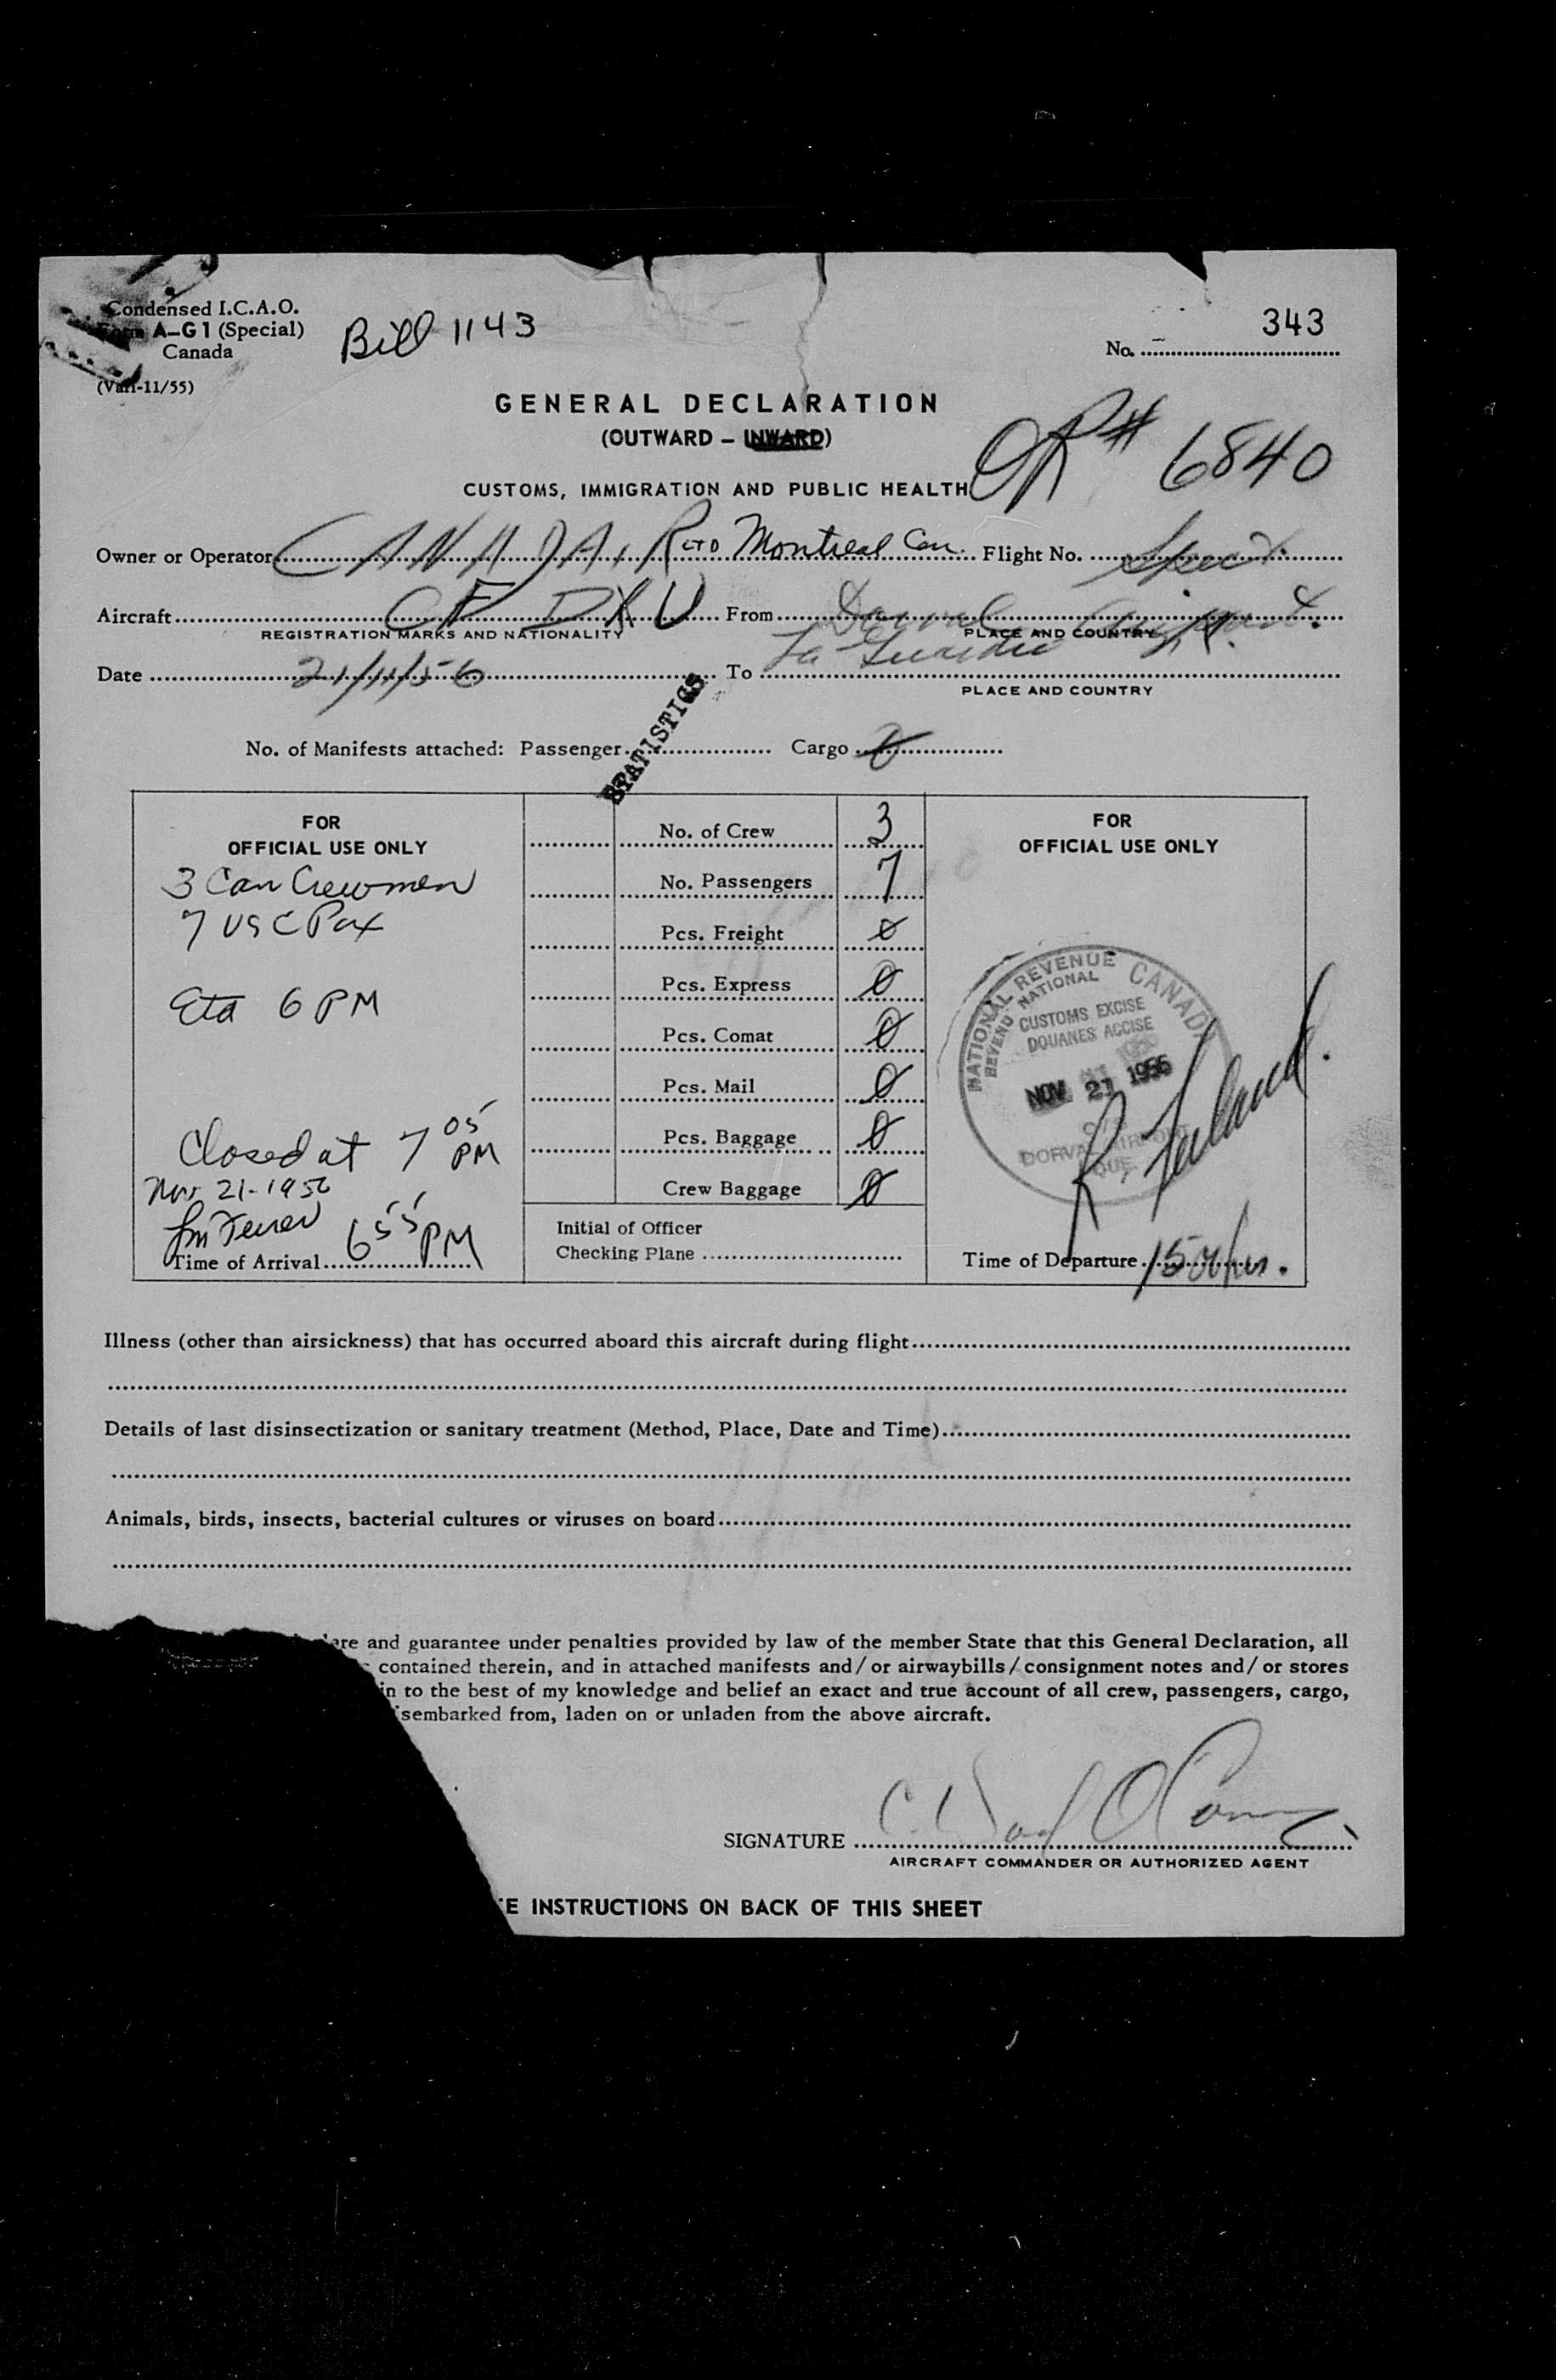 Condensed I.C.A.O.
Form A-G1 (Special)
Canada
(Vari-11/55)
Bill 1143
343
No.
GENERAL DECLARATION
(OUTWARD - INWARD)
CUSTOMS, IMMIGRATION AND PUBLIC HEALTH
6840
Owner or Operator CANADAIR LTD Montreal Can. Flight No.
Aircraft CF DXU From Dorval
REGISTRATION MARKS AND NATIONALITY PLACE AND COUNTRY
Date 21/11/56 To La Guardia
PLACE AND COUNTRY
STATISTICS
No. of Manifests attached: Passenger Cargo 0
FOR
OFFICIAL USE ONLY
3 Can Crewmen
7 USC Pax
Eta 6 PM
Closed at 7 05 PM
Nov 21-1956
Time of Arrival 6 55 PM
No. of Crew 3
No. Passengers 7
Pcs. Freight 0
Pcs. Express 0
Pcs. Comat 0
Pcs. Mail 0
Pcs. Baggage 0
Crew Baggage 0
Initial of Officer
Checking Plane
FOR
OFFICIAL USE ONLY
NATIONAL REVENUE CANADA
REVENU NATIONAL
CUSTOMS EXCISE
DOUANES ACCISE
NOV 21 1956
DORVAL AIRPORT
QUE.
Time of Departure 1500 hrs.
Illness (other than airsickness) that has occurred aboard this aircraft during flight
Details of last disinsectization or sanitary treatment (Method, Place, Date and Time)
Animals, birds, insects, bacterial cultures or viruses on board
and guarantee under penalties provided by law of the member State that this General Declaration, all
contained therein, and in attached manifests and/or airwaybills/consignment notes and/or stores
in to the best of my knowledge and belief an exact and true account of all crew, passengers, cargo,
sembarked from, laden on or unladen from the above aircraft.
SIGNATURE
AIRCRAFT COMMANDER OR AUTHORIZED AGENT
E INSTRUCTIONS ON BACK OF THIS SHEET